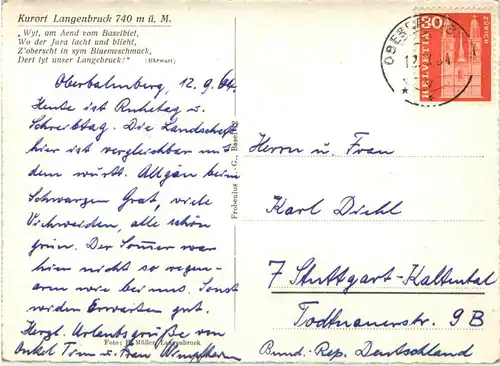 Kurort Langenbruck 740 m ü. M.
„Wyt, am Aend vom Baselbiet,
Wo der Jura lacht und blieht,
Z'oberscht in sym Bluemeschmuck,
Dert lyt unser Langebruck!" (Bärwart)
12. 9. 64.
Heute ist Ruhetag u.
Schreibtag. Die Landschaft
hier ist vergleichbar mit
dem württ. Allgäu beim
Schwarzen Grat, viele
Viehweiden, alle schön
grün. Der Sommer war
hier nicht so regen-
arm wie bei uns. Sonst
wird Erwarten gut.
Herzl. Urlaubsgrüße von
Onkel Timm u. Frau
Foto: H. Müller, Langenbruck
Frobenius A.-G., Basel
30
HELVETIA
ZÜRICH
12.
Herrn u. Frau
Karl Diehl
7 Stuttgart-Kaltental
Todtnauerstr. 9B
Bund.-Rep. Deutschland